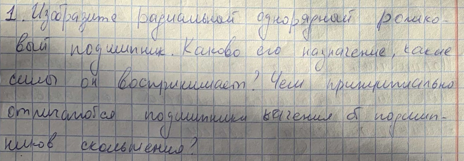 1. Изобразите радиальный однорядный ролико-
вый подшипник. Каково его назначение, какие
силы он воспринимает? Чем принципиально
отличаются подшипники качения от подшип-
ников скольжения?